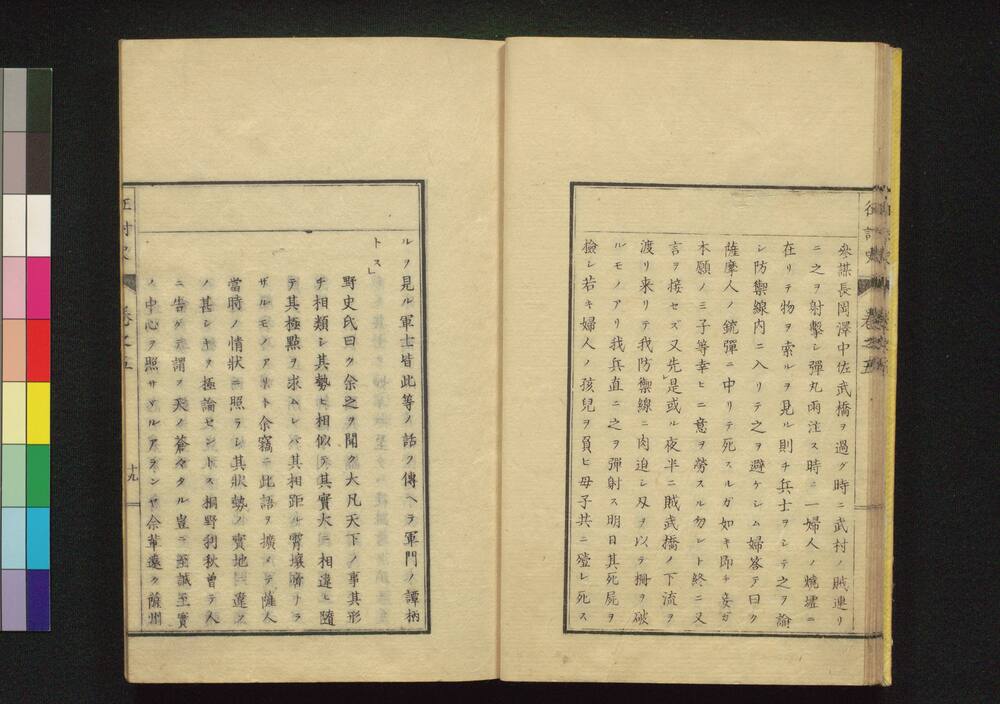 參謀長岡澤中佐武橋ヲ過グ時ニ武村ノ賊連リ
ニ之ヲ射擊シ彈丸兩注ス時ニ一婦人ノ燒墟ニ
在リテ物ヲ索ルヲ見ル則チ兵士ヲシテ之ヲ諭
シ防禦線内ニ入リテ之ヲ避ケシム婦答テ曰ク
薩摩人ノ銃彈ニ中リテ死スルガ如キ即チ妾ガ
本願ノミ子等幸ヒニ意ヲ勞スル勿レト終ニ又
言ヲ接セズ又先是或ル夜半ニ賊武橋ノ下流ヲ
渡リ来リテ我防禦線ニ肉迫シ刄ヲ以テ柵ヲ破
ルモノアリ我兵直ニ之ヲ彈射ス明日其死屍ヲ
撿レ若キ婦人ノ孩兒ヲ負ヒ母子共ニ殪レ死ス
ルヲ見ル軍士皆此等ノ話ヲ傳ヘテ軍門ノ譚柄
トス」
野史氏曰ク余之ヲ聞ク大凡天下ノ事其形
チ相類シ其勢ヒ相似テ其實大ニ相違ヒ隨
テ其極點ヲ求ムレバ其相距ル霄壤啻ナラ
ザルモノアリト余竊ニ此語ヲ擴メテ薩人
當時ノ情狀ニ照ラシ其狀勢ノ實地ニ違フ
ノ甚シキヲ極論セントス桐野利秋曾テ人
ニ告ゲテ謂フ天ノ蒼々タル豈ニ至誠至實
ノ中心ヲ照サヾルアランヤ余輩遠ク薩州
卷之五
十九
卷之五